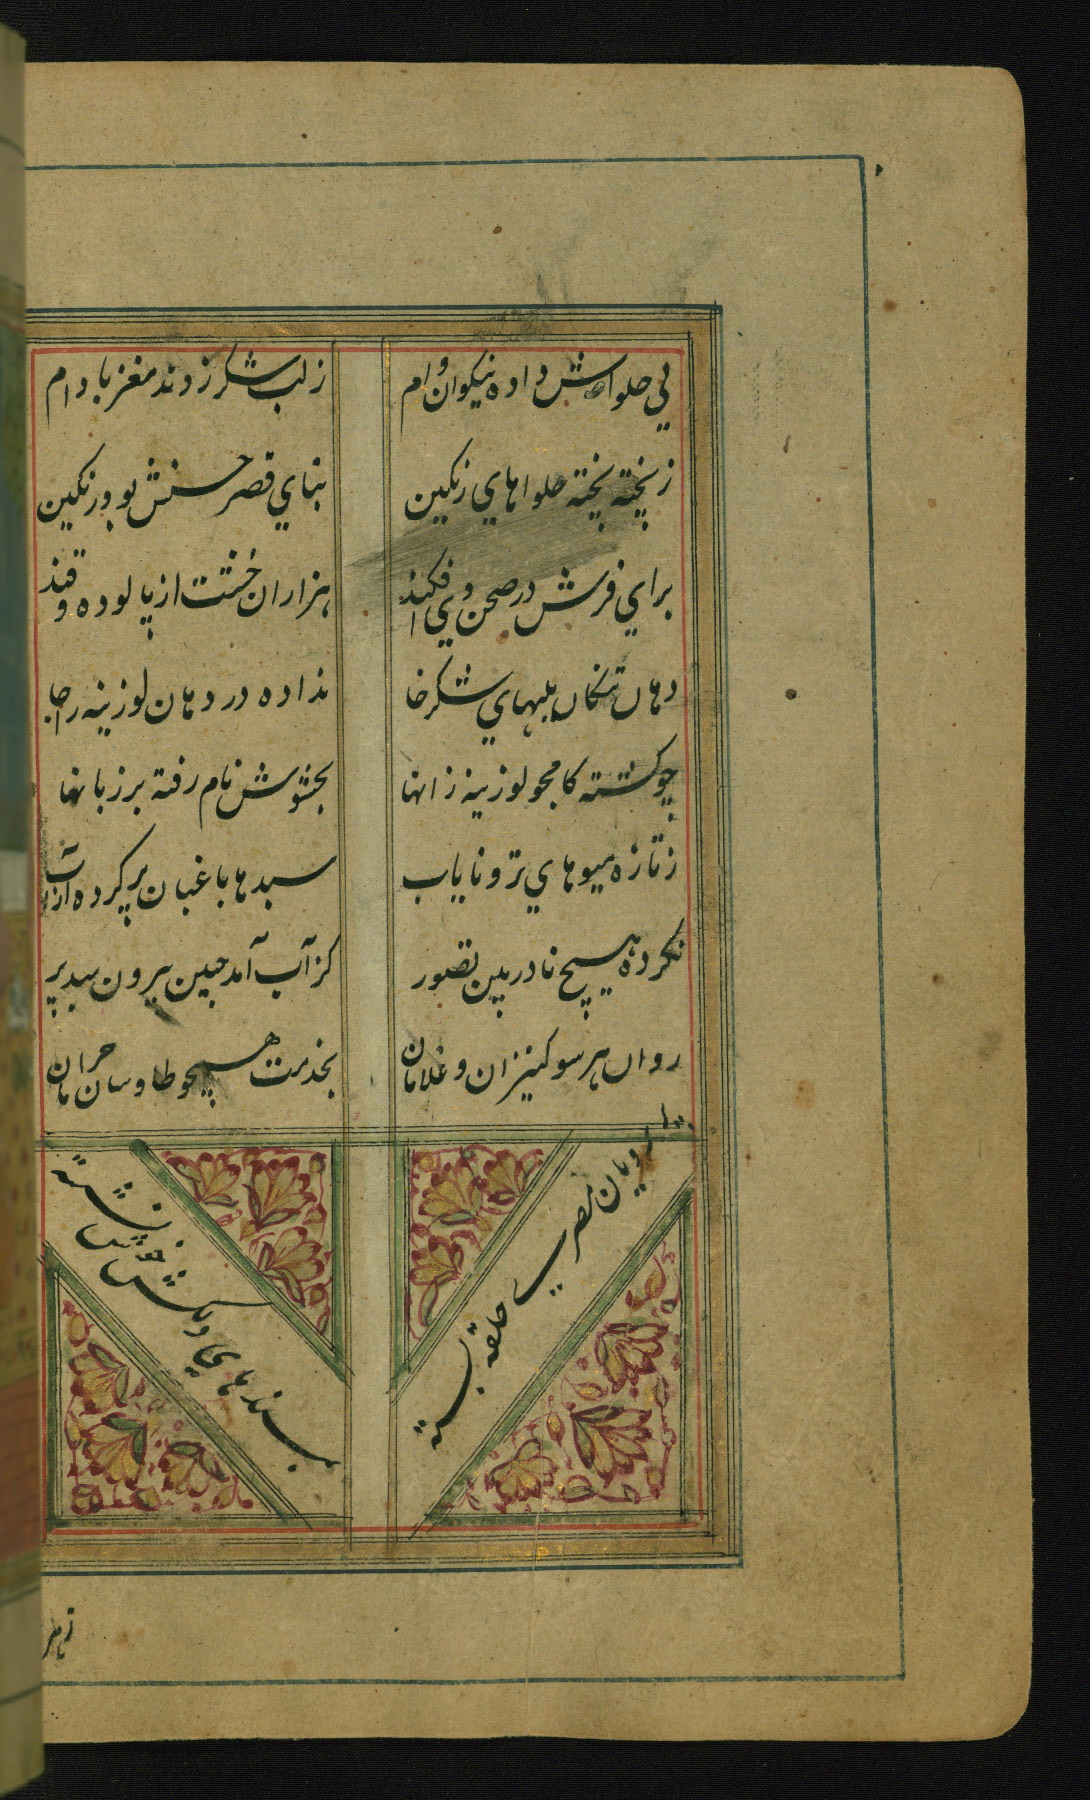 پي حلواش داده نیکوان وام زلب شکر زدند مغز بادام
ز پخته پخته حلواهاي رنکین بناي قصر حسنش بود رنکین
براي فرش در صحن وي افکند هزاران خشت از پالوده و قند
دهان تنکان بلبهاي شکرخا نداده در دهان لوزینه را جا
چو کشته کامجو لوزینه زانها بخشوش نام رفته بر زبانها
ز تازه میوهاي تر و نایاب سبدها باغبان پر کرده از آب
نکرده هیچ نادربین تصور کز آب آمد چنین بیرون سبد پر
روان هر سو کنیزان و غلامان بخدمت همچو طاوسان خرامان
رویان مصري حلقه بسته
بمسندهاي دلکش خوش نشسته
زهر